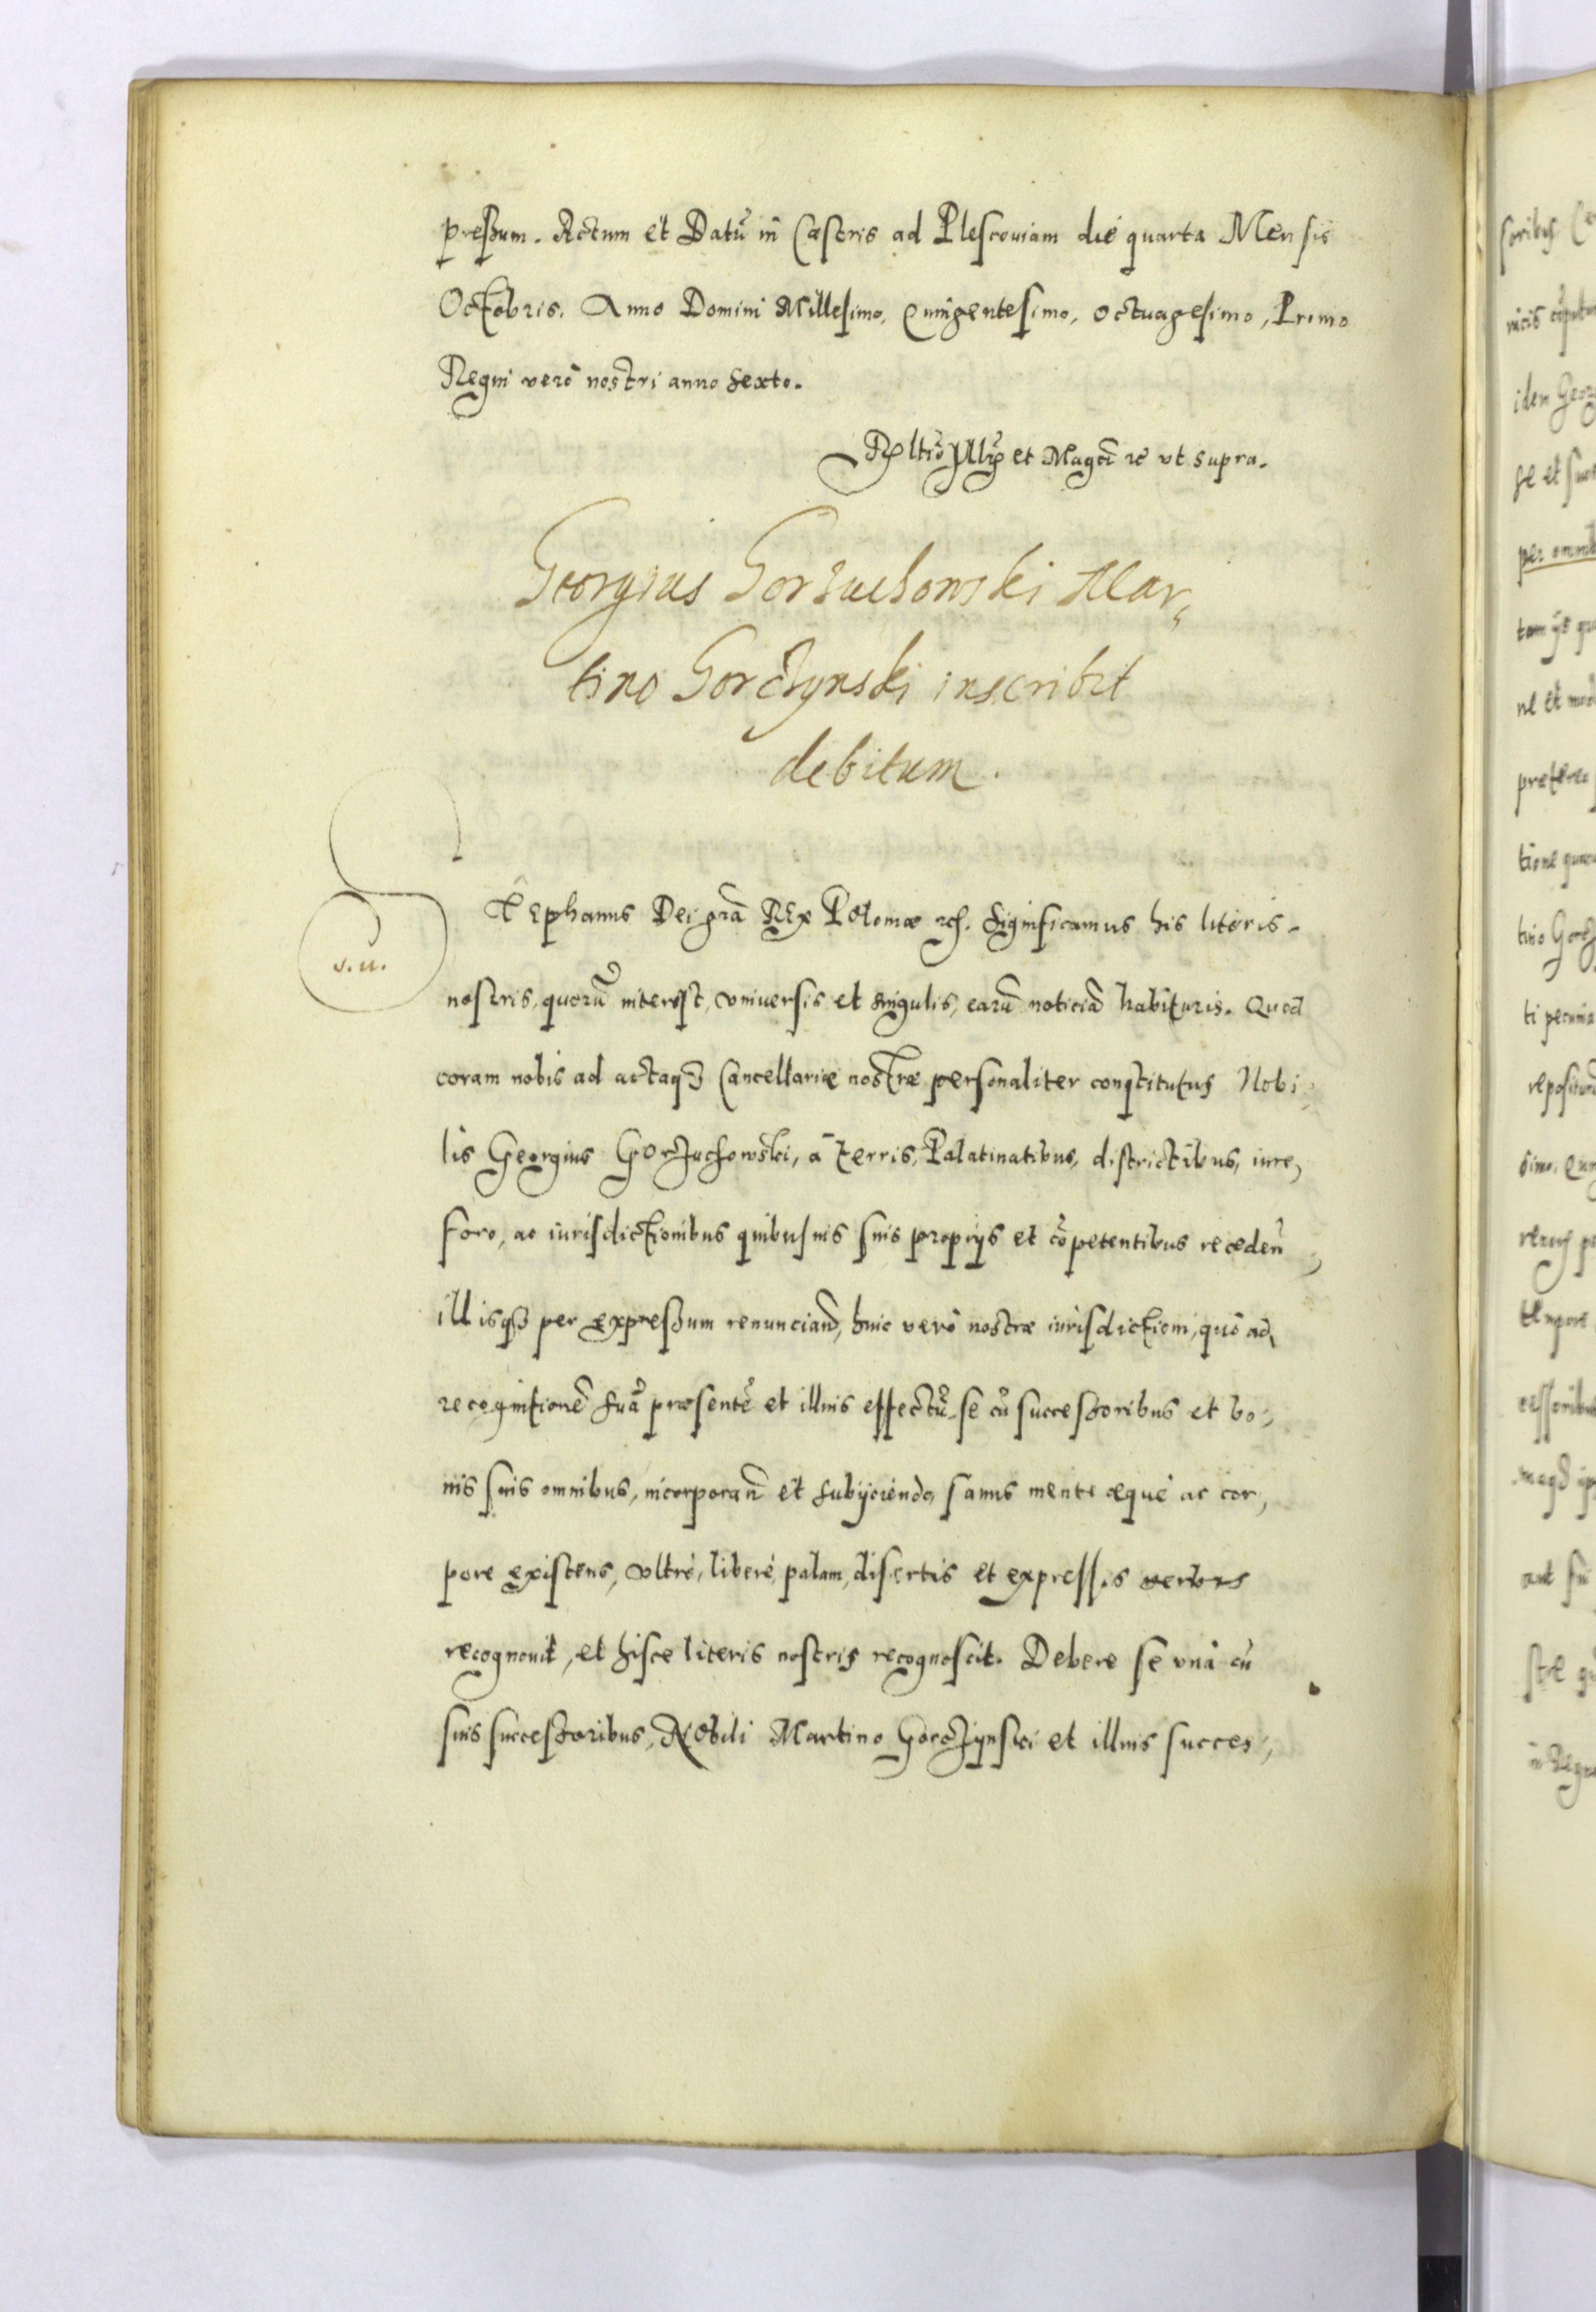 preßum. Actum et Datū in Castris ad Plescouiam die quarta Mensis
Octobris. Anno Domini Millesimo, Quingentesimo, Octuagesimo, Primo
Regni verò nostri anno sexto.
et Magci rc vt supra.
Georgius Gorzuchowski Mar,
tino Gorczynski inscribit
debitum.
Stephanus Dei grā Rex Poloniæ rc. Significamus his literis
s. u.
nostris, quorū interest, vniuersis et singulis, earū noticiā habituris. Quod
coram nobis ad actaqȝ Cancellariæ nostræ personaliter constitutus Nobi,
lis Georgius Gorzuchowski, à terris, Palatinatibus, districtibus, iure,
foro, ac iurisdictionibus quibusuis suis proprijs et cōpetentibus recedeñ,
illisqȝ per expreßum renunciand, huic verò nostræ iurisdictioni, quò ad,
recognitionē suā præsentē et illius effectū, se cū succeßoribus et bo,
nis suis omnibus, incorporañ et subijciendo, sanus mente æquè ac cor,
pore existens, vltrò, liberè, palam, disertis et expressis verbis
recognouit, et hisce literis nostris recognoscit. Debere se vnà cū
suis succeßoribus, Nobili Martino Gorczynski et illius succes,